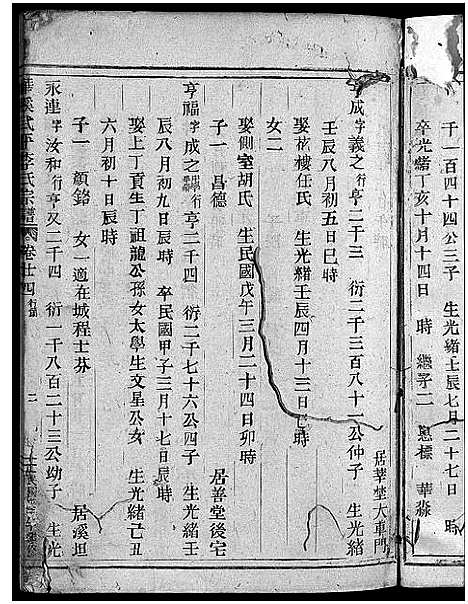 子一百四十公三子 生光緒壬辰七月二十七日 時
卒光緒丁亥十月十四日 時 繼子二 恩標 華淼
居莘塋大車門
成 字義之 行亨二千三 衍二千三百八十一公仲子 生光緒
壬辰八月初五日巳時
娶花樓任氏 生光緒壬辰四月十三日巳時
女二
娶側室胡氏 生民國戊午三月二十四日卯時
子一 昌德 居善堂後宅
亨福 字成之 行亨二千四 衍二千七十六公四子 生光緒壬
辰八月初九日辰時 卒民國甲子三月十七日辰時
娶上丁貢生丁祖龍公孫女太學生文星公女 生光緒己丑
六月初十日辰時
子一 顏銘 女一適在城程士芬 居溪坦
永連 字汝和 行亨又二千四 衍一千八百二十三公幼子 生光
華溪武平李氏宗譜 卷廿四 行第 二